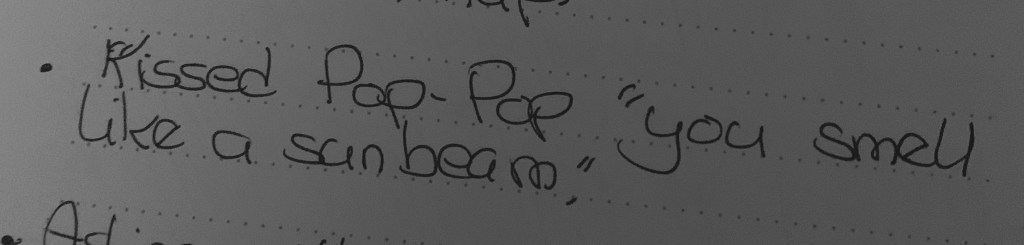 • Kissed Pop-Pop "you smell
like a sunbeam."